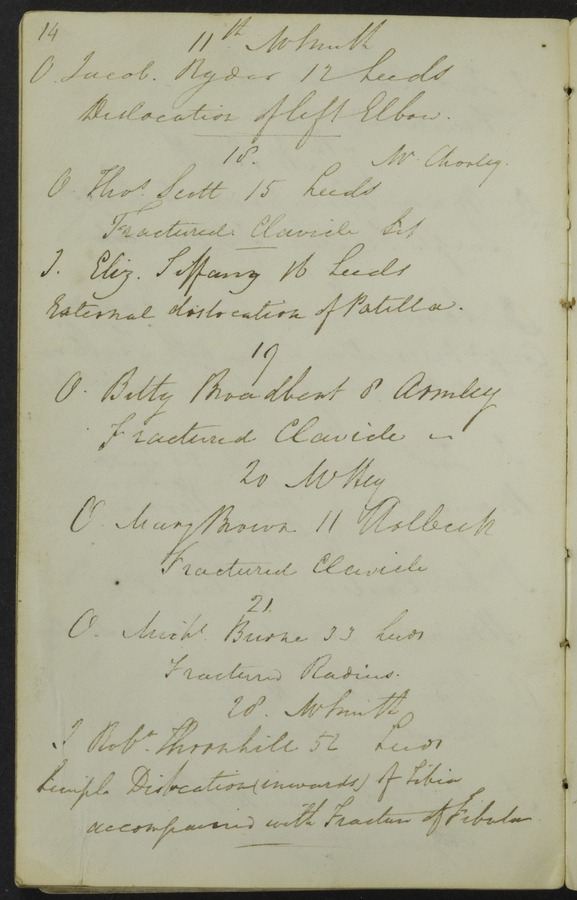 14
11th Mr Smith
O Jacob. Ryder 12 Leeds
Dislocation of left Elbow.
18. Mr Chorley.
O. Thos. Scott 15 Leeds
Fractured Clavicle
I. Eliz. Tiffany 16 Leeds
External dislocation of Patella.
19
O. Betty Broadbent 8 Armley
Fractured Clavicle
20 Mr Hey
O. Mary Brown 11 Holbeck
Fractured Clavicle
21.
O. Michl. Burke 33 Leeds
Fractured Radius.
28. Mr Smith
I Robt. Thornhill 52 Leeds
Simple Dislocation (inwards) of Tibia
accompanied with Fracture of Fibula